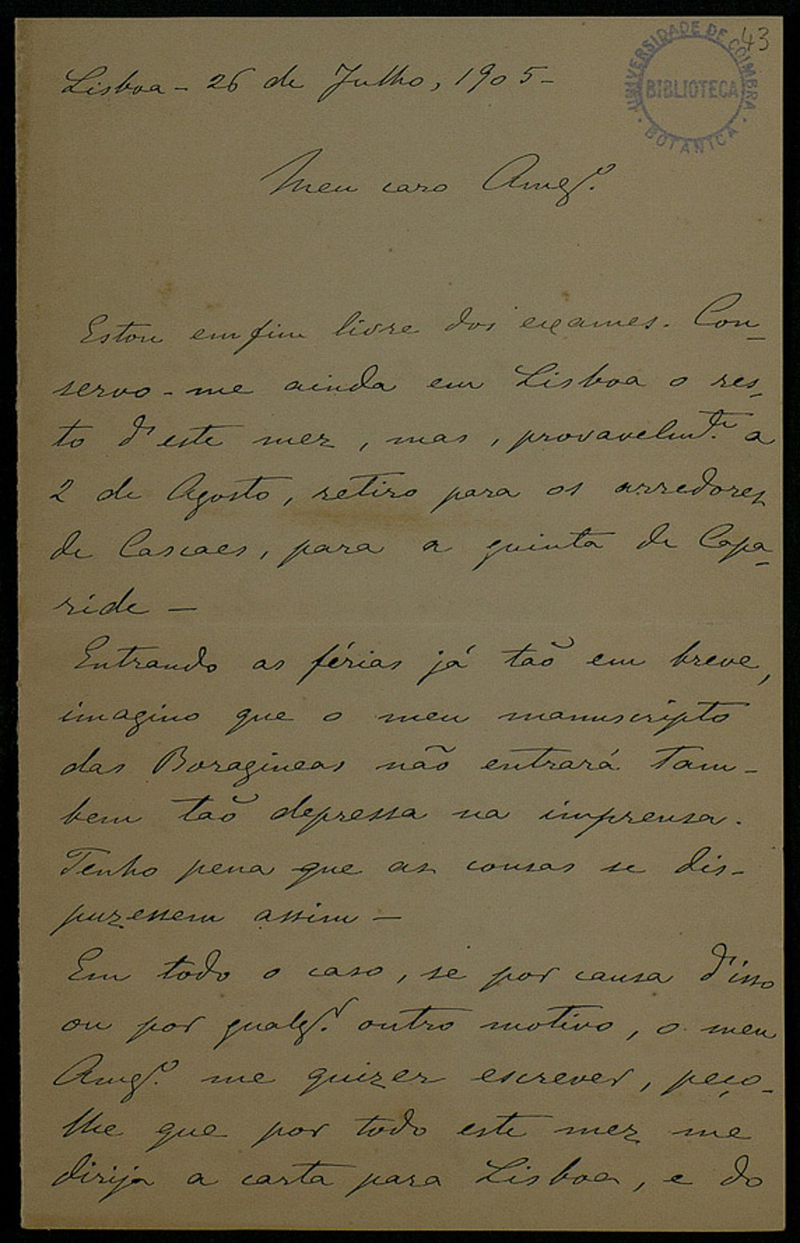 43
UNIVERSIDADE DE COIMBRA
BIBLIOTECA
BOTANICA
Lisboa - 26 de Julho, 1905 -
Meu caro Amg.º
Estou emfim livre dos exames. Con-
servo-me ainda em Lisboa o res-
to d'este mez, mas, provavelmt.e a
2 de Agosto, retiro para os arredores
de Cascaes, para a quinta de Capa-
ride -
Entrando as férias já tão em breve,
imagino que o meu manuscripto
das Boragineas não entrará tam-
bem tão depressa na imprensa.
Tenho pena que as cousas se dis-
puzessem assim -
Em todo o caso, se por causa d'isso
ou por qualq.r outro motivo, o meu
Amg.º me quizer escrever, peço-
lhe que por todo este mez me
dirija a carta para Lisboa, e do